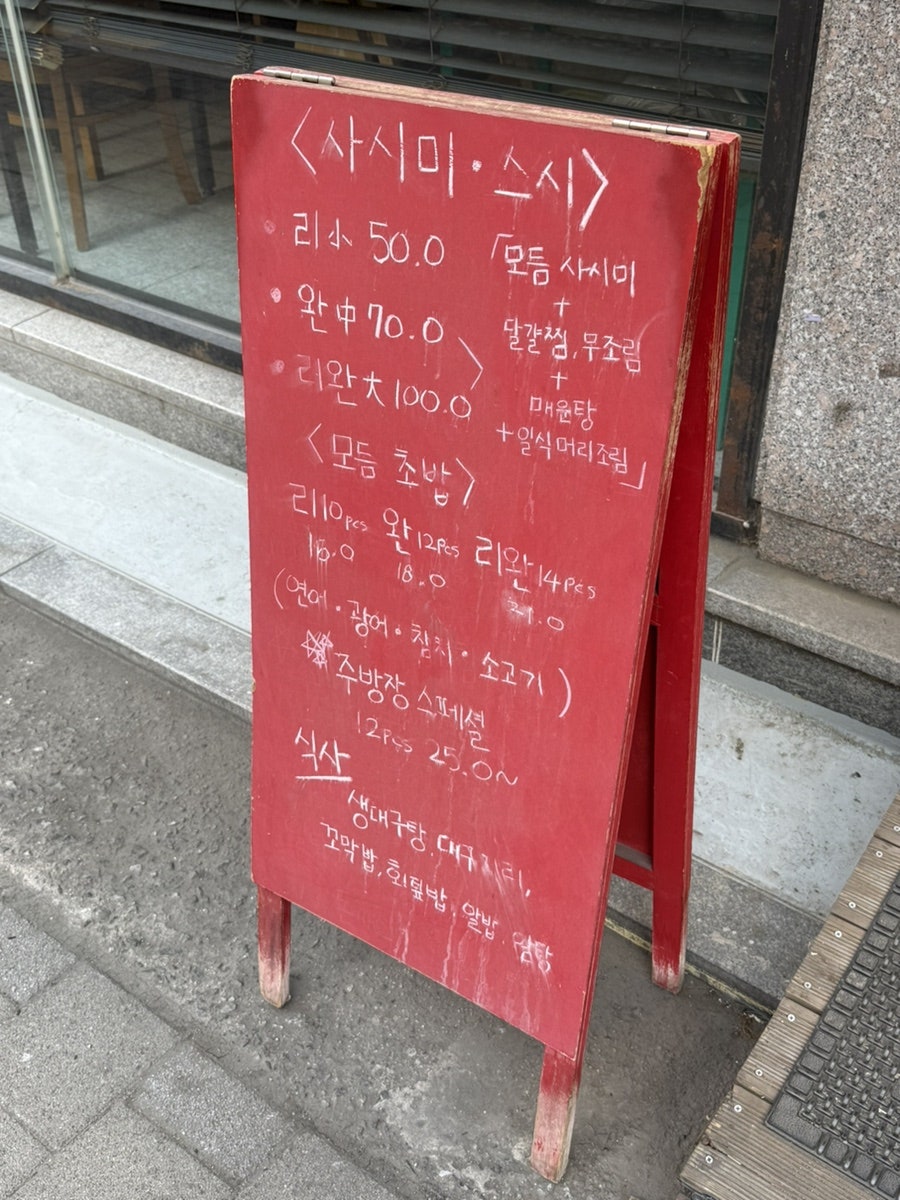 <사시미·스시>
• 리小 50.0
• 완中 70.0
• 리완大 100.0
「모듬 사시미
+
달걀찜, 무조림
+
매운탕
+일식머리조림」
<모듬 초밥>
리10pcs 완12pcs 리완14pcs
18.0 .0
(연어·광어·참치·소고기)
주방장 스페셜
12pcs 25.0~
식사
생대구탕, 대구지리,
꼬막밥, 회덮밥, 알밥,